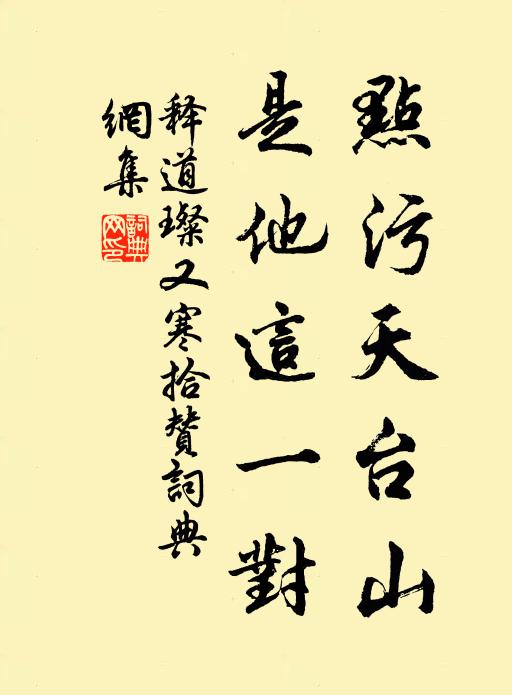 點污天台山
是他這一對
释道璨又寒拾赞詞典
網集
詞典
网印